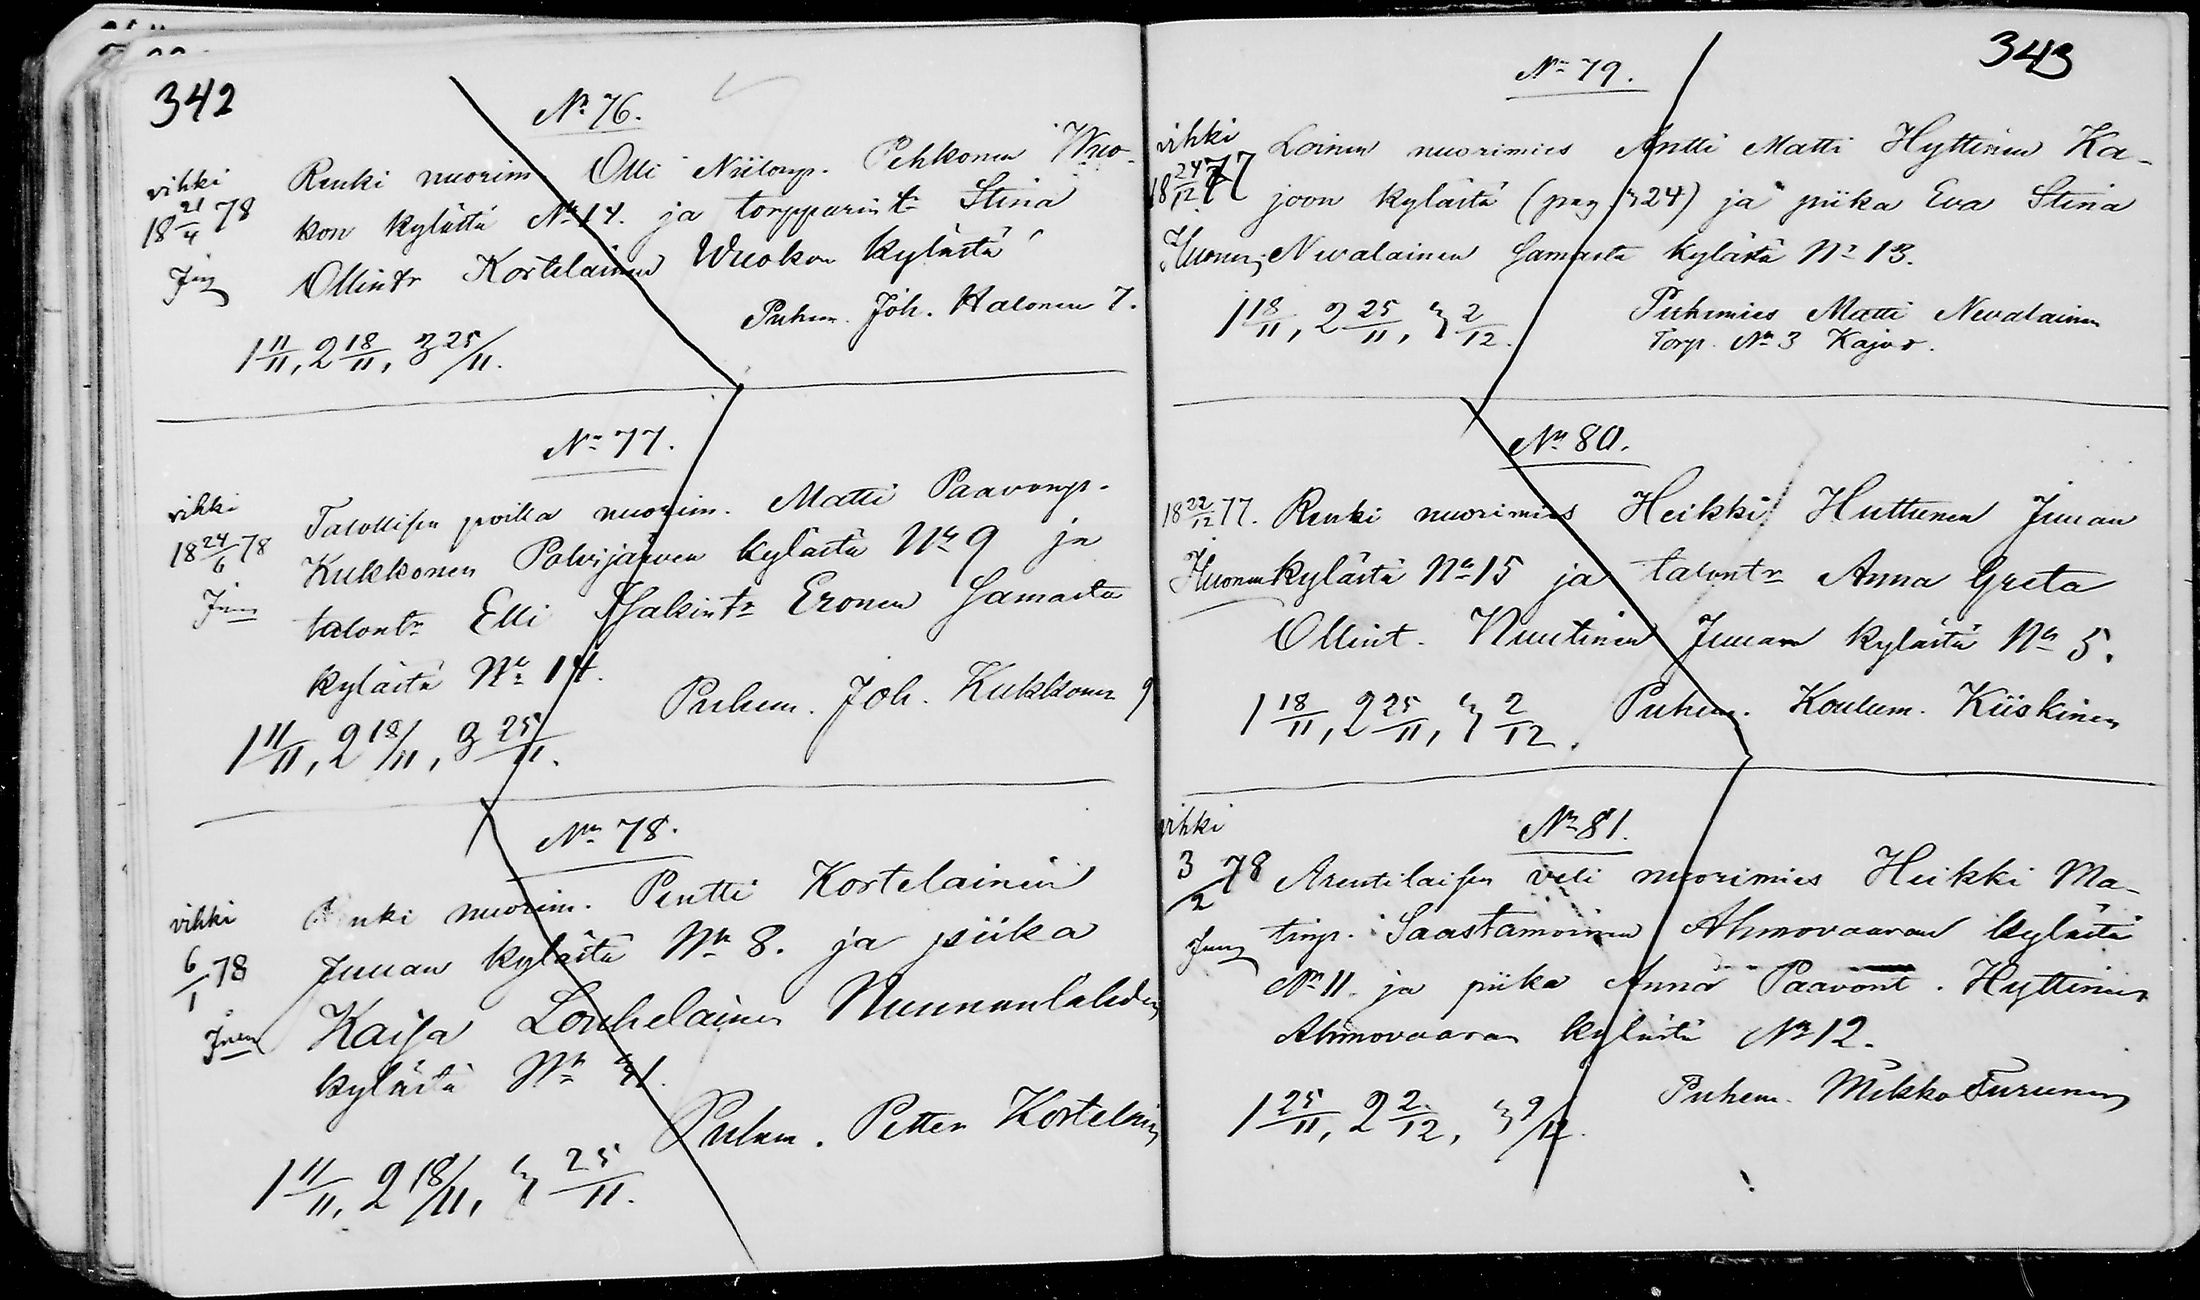 342
No 76.
vihki
18 21/4 78
Renki nuorim. Olli Niilonp. Pehkonen Wuo-
kon kylästä No 14. ja torpparint. Stina
Ollintr Kortelainen Wuokon kylästä
Puhem. Joh. Halonen 7.
1 11/11, 2 18/11, 3 25/11.
No 77.
vihki
18 24/6 78
Talollisen poika nuorim. Matti Paavonp.
Kukkonen Polvijärven kylästä No 9 ja
talontr Elli Isakintr Eronen Samasta
kylästä No 14.
Puhem. Joh. Kukkonen 9
1 11/11, 2 18/11, 3 25/11.
No 78.
vihki
6/1 78
Renki nuorim. Pentti Kortelainen
Juuan kylästä No 8. ja piika
Kaisa Louhelainen Nunnanlahden
kylästä No
Puhem. Petter Kortelain
1 11/11, 2 18/11, 3 25/11.
343
No 79.
vihki
18 24/12 77
Loinen nuorimies Antti Matti Hyttinen Ka-
joon kylästä (pag 324) ja piika Eva Stina
Huonen Nevalainen Samasta kylästä No 13.
Puhemies Matti Nevalainen
Torp. No 3 Kajoo.
1 18/11, 2 25/11, 3 2/12.
No 80.
18 22/12 77. Renki nuorimies Heikki Huttunen Juuan
Huonen kylästä No 15 ja talontr Anna Greta
Ollint. Nuutinen Juuan kylästä No 5.
1 18/11, 2 25/11, 3 2/12. Puhem. Koulum. Kiiskinen
No 81.
vihki
3/2 78 Arentilaisen veli nuorimies Heikki Ma-
tinp. Saastamoinen Ahmovaaran kylästä
No 11. ja piika Anna Paavont. Hyttinen
Ahmovaaran kylästä No 12.
Puhem. Mikko Turunen
1 25/11, 2 2/12, 3 9/12.